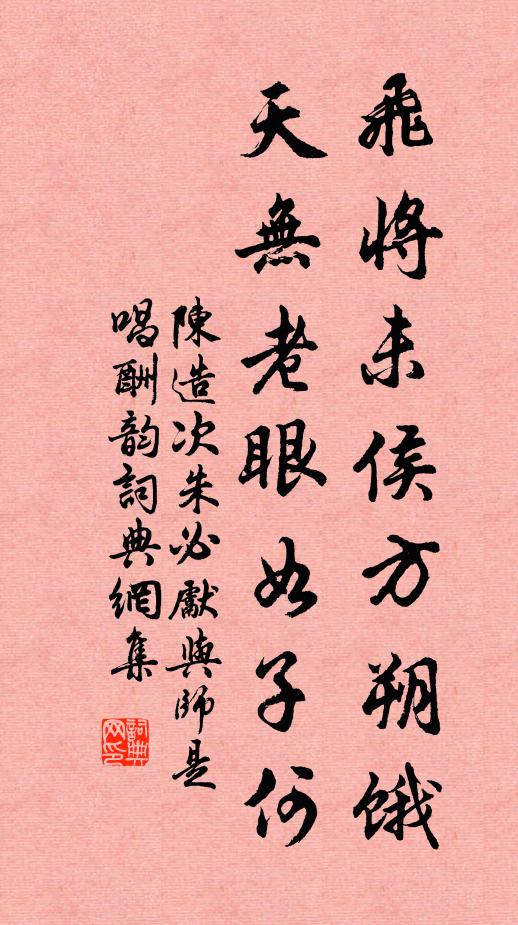 飛將未侯方朔餓
天無老眼如子何
陳造次朱必獻與師是
唱酬韵詞典網集
詞典网印